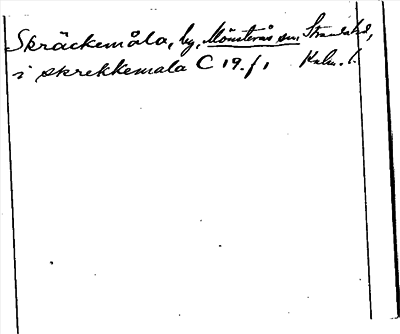 Skräckemåla, by, Mönsterås sn, Stranda hd,
i skrekkemala C 19. f 1 Kalm. l.